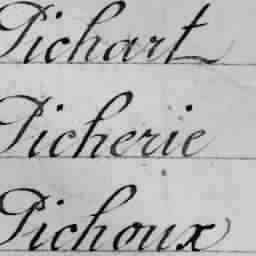 Pichart
Picherie
Pichoux